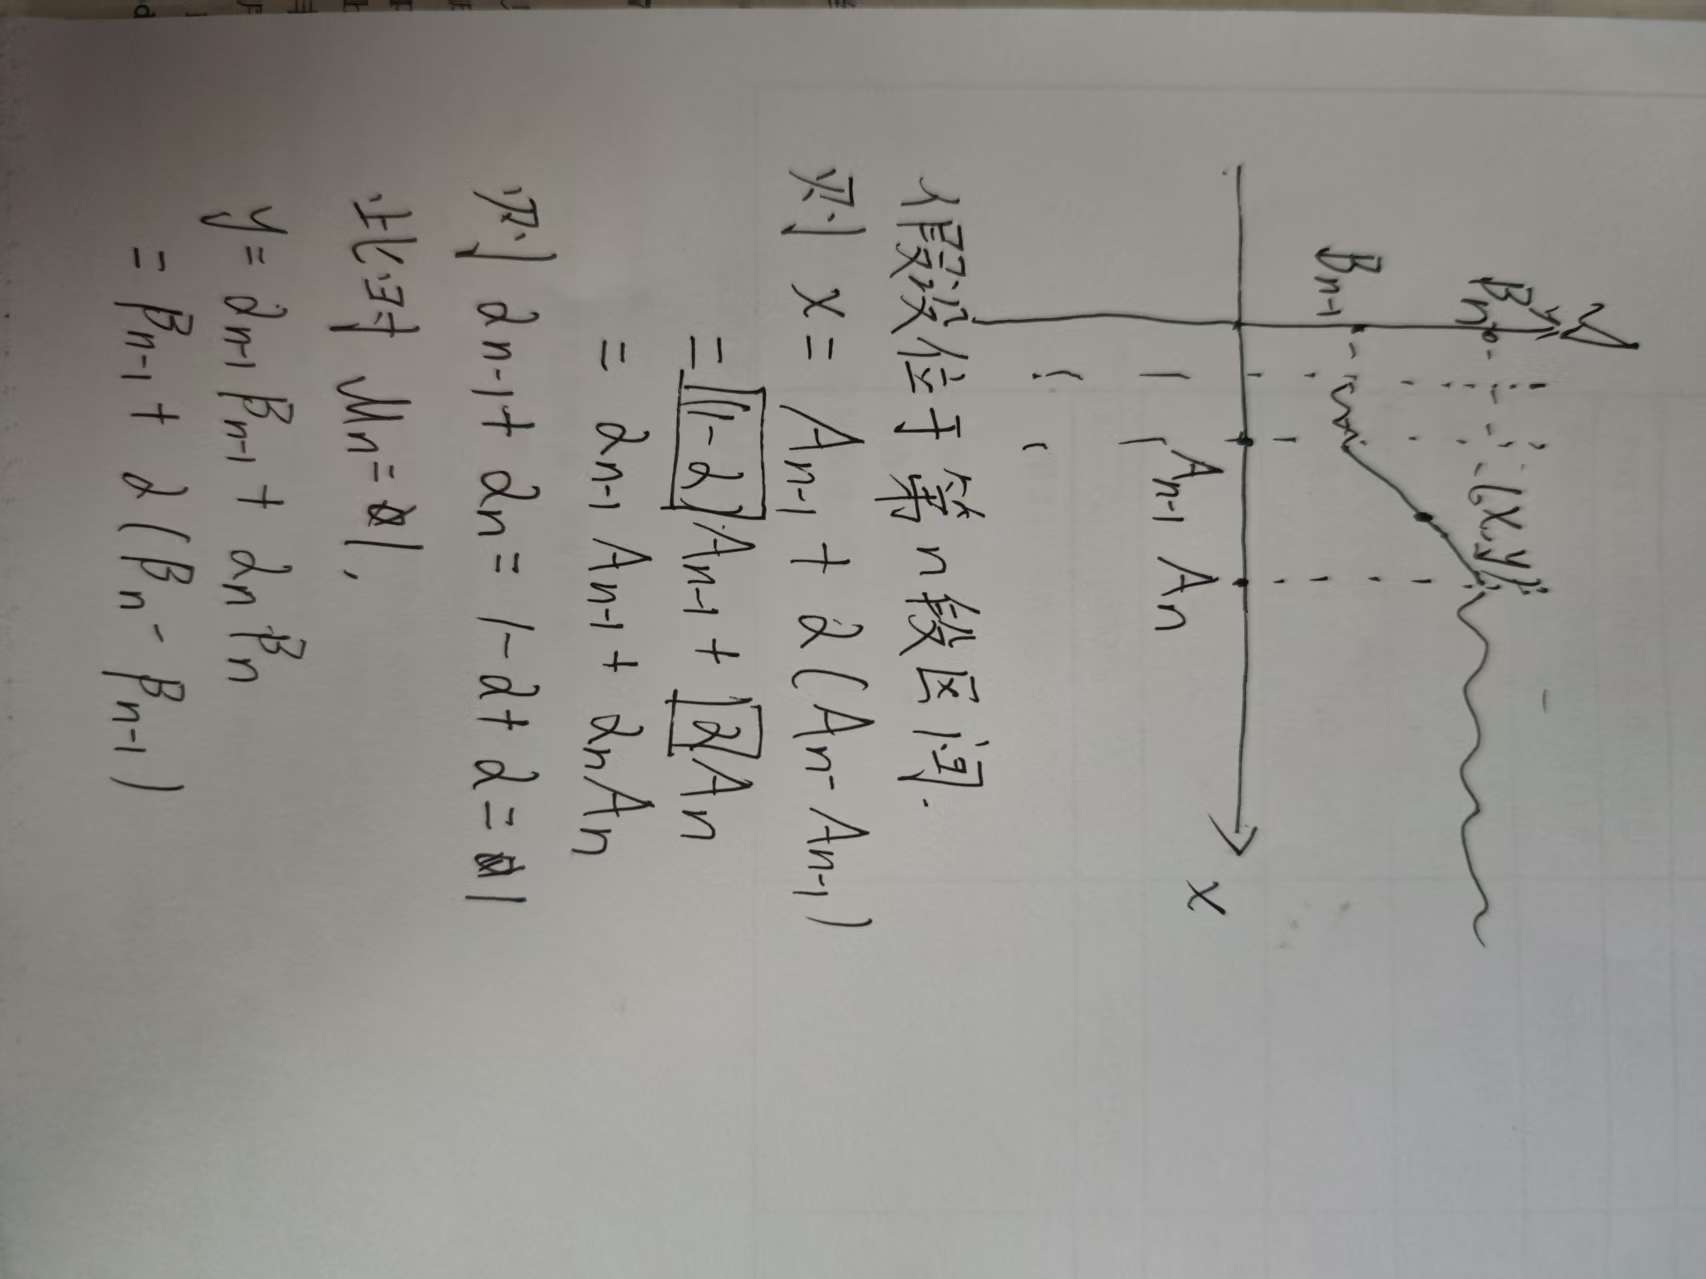 y
Bn
Bn-1
(x,y)
An-1 An
x
假设位于第n段区间.
则 x = An-1 + α(An - An-1)
= (1-α)An-1 + αAn
= αn-1 An-1 + αn An
则 αn-1 + αn = 1-α+α = 1
此时 Mn = 1,
y = αn-1 βn-1 + αn βn
= βn-1 + α(βn - βn-1)